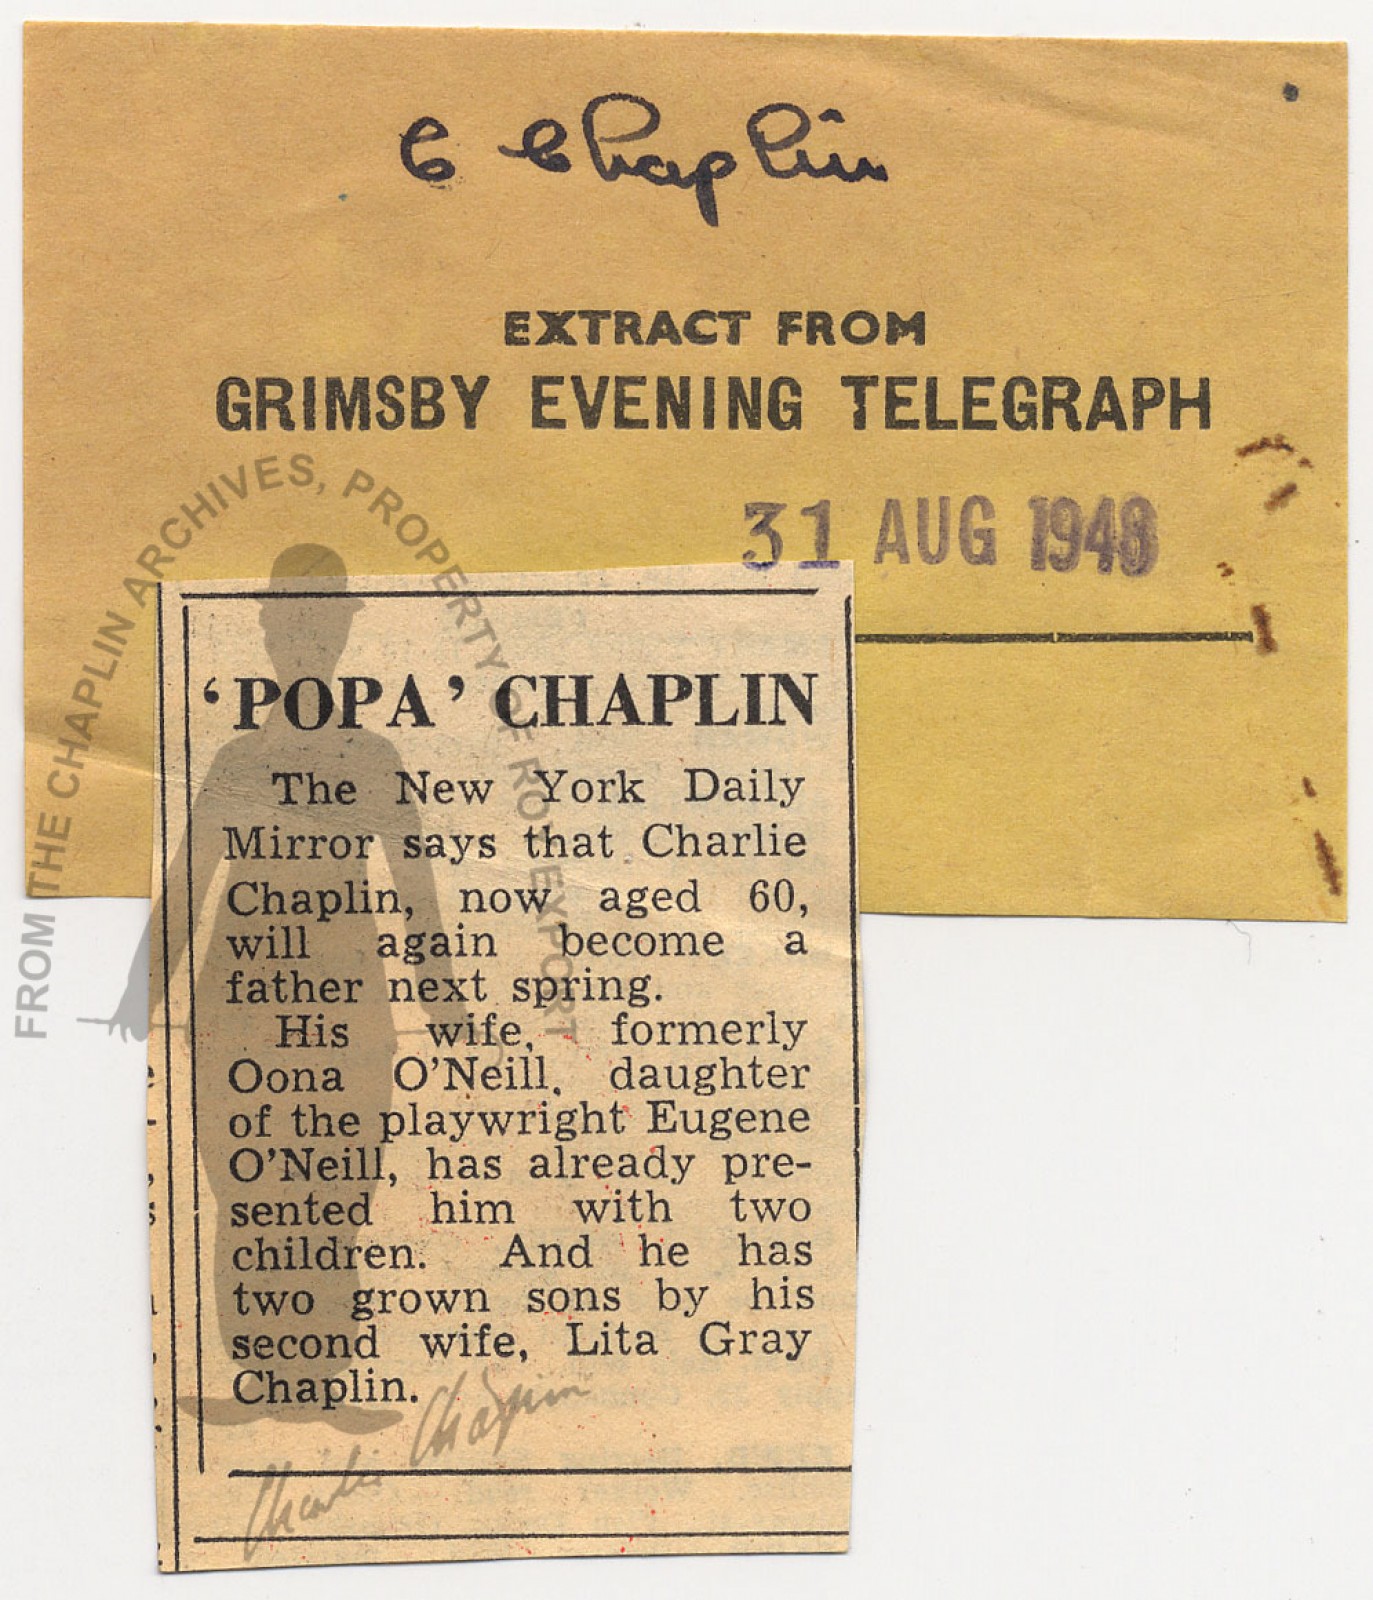 C Chaplin
EXTRACT FROM
GRIMSBY EVENING TELEGRAPH
31 AUG 1948
FROM THE CHAPLIN ARCHIVES, PROPERTY OF ROY EXPORT
‘POPA’ CHAPLIN
The New York Daily
Mirror says that Charlie
Chaplin, now aged 60,
will again become a
father next spring.
His wife, formerly
Oona O’Neill, daughter
of the playwright Eugene
O’Neill, has already pre-
sented him with two
children. And he has
two grown sons by his
second wife, Lita Gray
Chaplin.
Charlie Chaplin